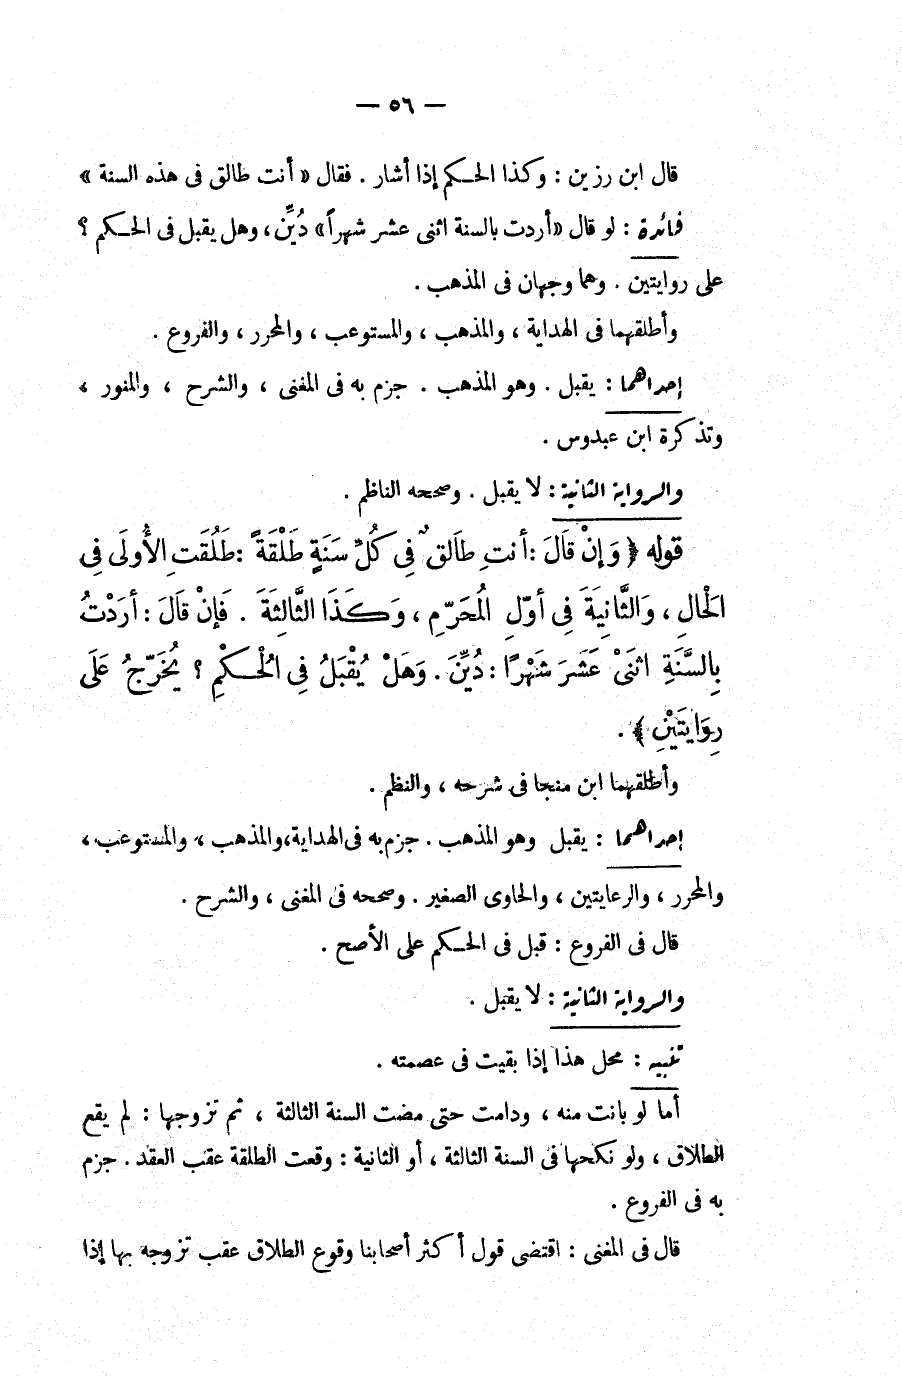 — ٥٦ —
قال ابن رزين : وكذا الحكم إذا أشار . فقال « أنت طالق فى هذه السنة »
فائدة : لو قال «أردت بالسنة اثنى عشر شهراً» دُيِّن، وهل يقبل فى الحكم ؟
على روايتين . وهما وجهان فى المذهب .
وأطلقهما فى الهداية ، والمذهب ، والمستوعب ، والمحرر ، والفروع .
إحداهما : يقبل . وهو المذهب . جزم به فى المغنى ، والشرح ، والمنور ،
وتذكرة ابن عبدوس .
والرواية الثانية : لا يقبل . وصححه الناظم .
قوله ﴿ وَإِنْ قَالَ : أنتِ طَالَقٌ فِى كُلِّ سَنَةٍ طَلْقَةً : طَلُقَتِ الأُولَى فِى
الْحَالِ ، وَالثَّانِيَةَ فِى أوّلِ الْمُحَرّمِ ، وَكَذَا الثَّالِثَةَ . فَإِنْ قَالَ : أرَدْتُ
بِالسَّنَةِ اثنَىْ عَشَرَ شَهْرًا : دُيِّنَ . وَهَلْ يُقْبَلُ فِى الْحُكْمِ ؟ يُخَرّجُ عَلَى
رِوَايَتَيْنِ ﴾ .
وأطلقهما ابن منجا فى شرحه ، والنظم .
إحداهما : يقبل وهو المذهب . جزم به فى الهداية،والمذهب ، والمستوعب ،
والمحرر ، والرعايتين ، والحاوى الصغير . وصححه فى المغنى ، والشرح .
قال فى الفروع : قبل فى الحكم على الأصح .
والرواية الثانية : لا يقبل .
تنبيه : محل هذا إذا بقيت فى عصمته .
أما لو بانت منه ، ودامت حتى مضت السنة الثالثة ، ثم تزوجها : لم يقع
الطلاق ، ولو نكحها فى السنة الثالثة ، أو الثانية : وقعت الطلقة عقب العقد . جزم
به فى الفروع .
قال فى المغنى : اقتضى قول أكثر أصحابنا وقوع الطلاق عقب تزوجه بها إذا